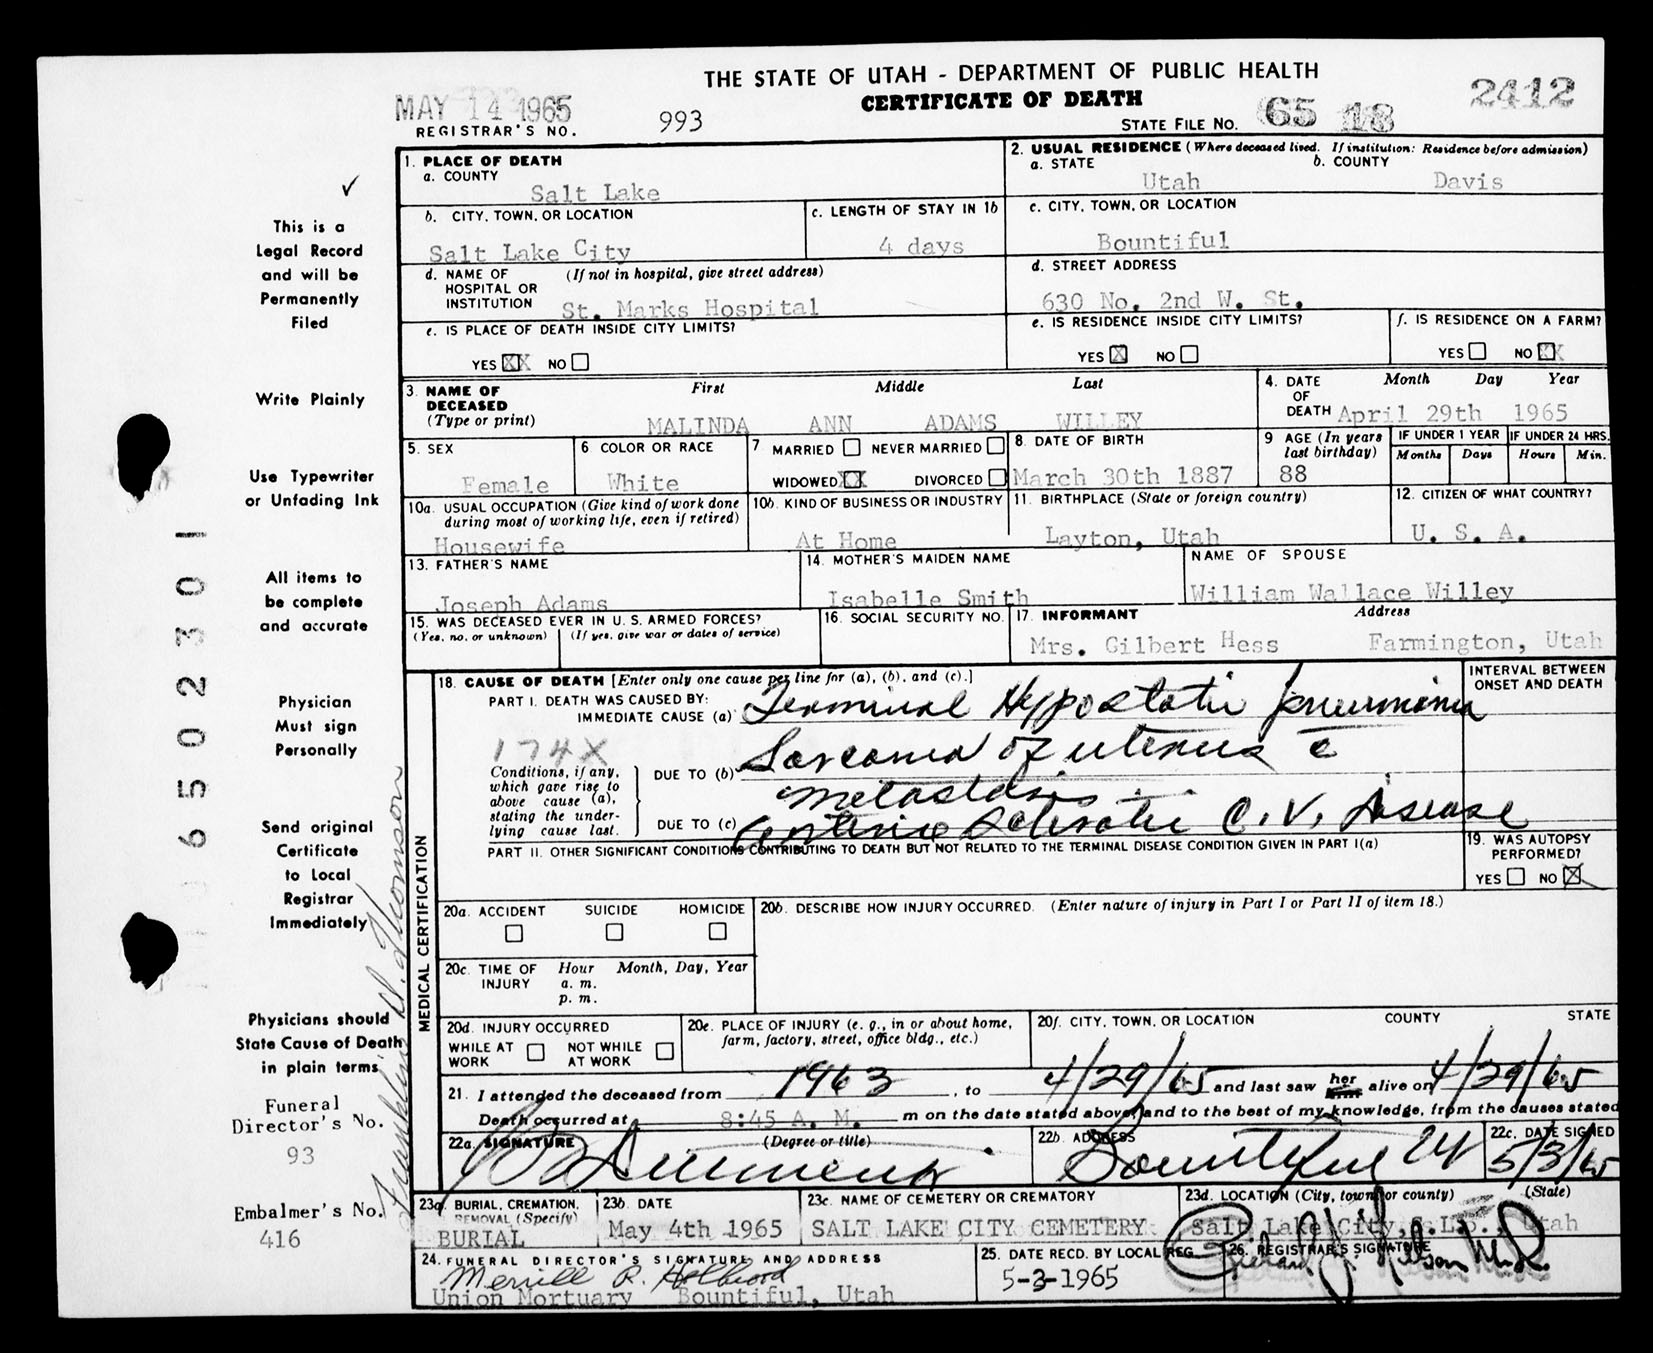 THE STATE OF UTAH - DEPARTMENT OF PUBLIC HEALTH
CERTIFICATE OF DEATH
MAY 14 1965
REGISTRAR'S NO. 993
STATE FILE NO. 65 18 2412
1. PLACE OF DEATH
a. COUNTY
Salt Lake
2. USUAL RESIDENCE (Where deceased lived. If institution: Residence before admission)
a. STATE b. COUNTY
Utah Davis
b. CITY, TOWN, OR LOCATION
Salt Lake City
c. LENGTH OF STAY IN 1b
4 days
c. CITY, TOWN, OR LOCATION
Bountiful
d. NAME OF HOSPITAL OR INSTITUTION (If not in hospital, give street address)
St. Marks Hospital
d. STREET ADDRESS
630 No. 2nd W. St.
e. IS PLACE OF DEATH INSIDE CITY LIMITS?
YES XX NO
e. IS RESIDENCE INSIDE CITY LIMITS?
YES X NO
f. IS RESIDENCE ON A FARM?
YES NO XX
3. NAME OF DECEASED (Type or print)
First Middle Last
MALINDA ANN ADAMS WILLEY
4. DATE OF DEATH
Month Day Year
April 29th 1965
5. SEX
Female
6 COLOR OR RACE
White
7 MARRIED NEVER MARRIED
WIDOWED XX DIVORCED
8. DATE OF BIRTH
March 30th 1887
9 AGE (In years last birthday)
88
IF UNDER 1 YEAR
Months Days
IF UNDER 24 HRS.
Hours Min.
10a. USUAL OCCUPATION (Give kind of work done during most of working life, even if retired)
Housewife
10b. KIND OF BUSINESS OR INDUSTRY
At Home
11. BIRTHPLACE (State or foreign country)
Layton, Utah
12. CITIZEN OF WHAT COUNTRY?
U. S. A.
13. FATHER'S NAME
Joseph Adams
14. MOTHER'S MAIDEN NAME
Isabelle Smith
NAME OF SPOUSE
William Wallace Willey
15. WAS DECEASED EVER IN U. S. ARMED FORCES?
(Yes, no, or unknown) (If yes, give war or dates of service)
16. SOCIAL SECURITY NO.
17. INFORMANT Address
Mrs. Gilbert Hess Farmington, Utah
MEDICAL CERTIFICATION
18. CAUSE OF DEATH [Enter only one cause per line for (a), (b), and (c).]
INTERVAL BETWEEN ONSET AND DEATH
PART I. DEATH WAS CAUSED BY:
IMMEDIATE CAUSE (a) Terminal Hypostatic pneumonia
174X
Conditions, if any, which gave rise to above cause (a), stating the underlying cause last.
DUE TO (b) Sarcoma of uterus c̄
metastasis
DUE TO (c) arterio sclerotic C. V. Disease
PART II. OTHER SIGNIFICANT CONDITIONS CONTRIBUTING TO DEATH BUT NOT RELATED TO THE TERMINAL DISEASE CONDITION GIVEN IN PART I(a)
19. WAS AUTOPSY PERFORMED?
YES NO X
20a. ACCIDENT SUICIDE HOMICIDE
20b. DESCRIBE HOW INJURY OCCURRED. (Enter nature of injury in Part I or Part II of item 18.)
20c. TIME OF INJURY Hour Month, Day, Year
a. m.
p. m.
20d. INJURY OCCURRED
WHILE AT WORK NOT WHILE AT WORK
20e. PLACE OF INJURY (e. g., in or about home, farm, factory, street, office bldg., etc.)
20f. CITY, TOWN, OR LOCATION COUNTY STATE
21. I attended the deceased from 1963, to 4/29/65 and last saw her him alive on 4/29/65
Death occurred at 8:45 A. M. m on the date stated above, and to the best of my knowledge, from the causes stated
22a. SIGNATURE (Degree or title)
22b. ADDRESS
Bountiful
22c. DATE SIGNED
5/3/65
23a. BURIAL, CREMATION, REMOVAL (Specify)
BURIAL
23b. DATE
May 4th 1965
23c. NAME OF CEMETERY OR CREMATORY
SALT LAKE CITY CEMETERY
23d. LOCATION (City, town, or county) (State)
Salt Lake City, S. L. Co., Utah
24. FUNERAL DIRECTOR'S SIGNATURE AND ADDRESS
Merrill R. Holbrood
Union Mortuary Bountiful, Utah
25. DATE RECD. BY LOCAL REG.
5-3-1965
26. REGISTRAR'S SIGNATURE
This is a
Legal Record
and will be
Permanently
Filed
Write Plainly
Use Typewriter
or Unfading Ink
All items to
be complete
and accurate
Physician
Must sign
Personally
Send original
Certificate
to Local
Registrar
Immediately
Physicians should
State Cause of Death
in plain terms
Funeral
Director's No.
93
Embalmer's No.
416
Franklin D. Thomson
6502301